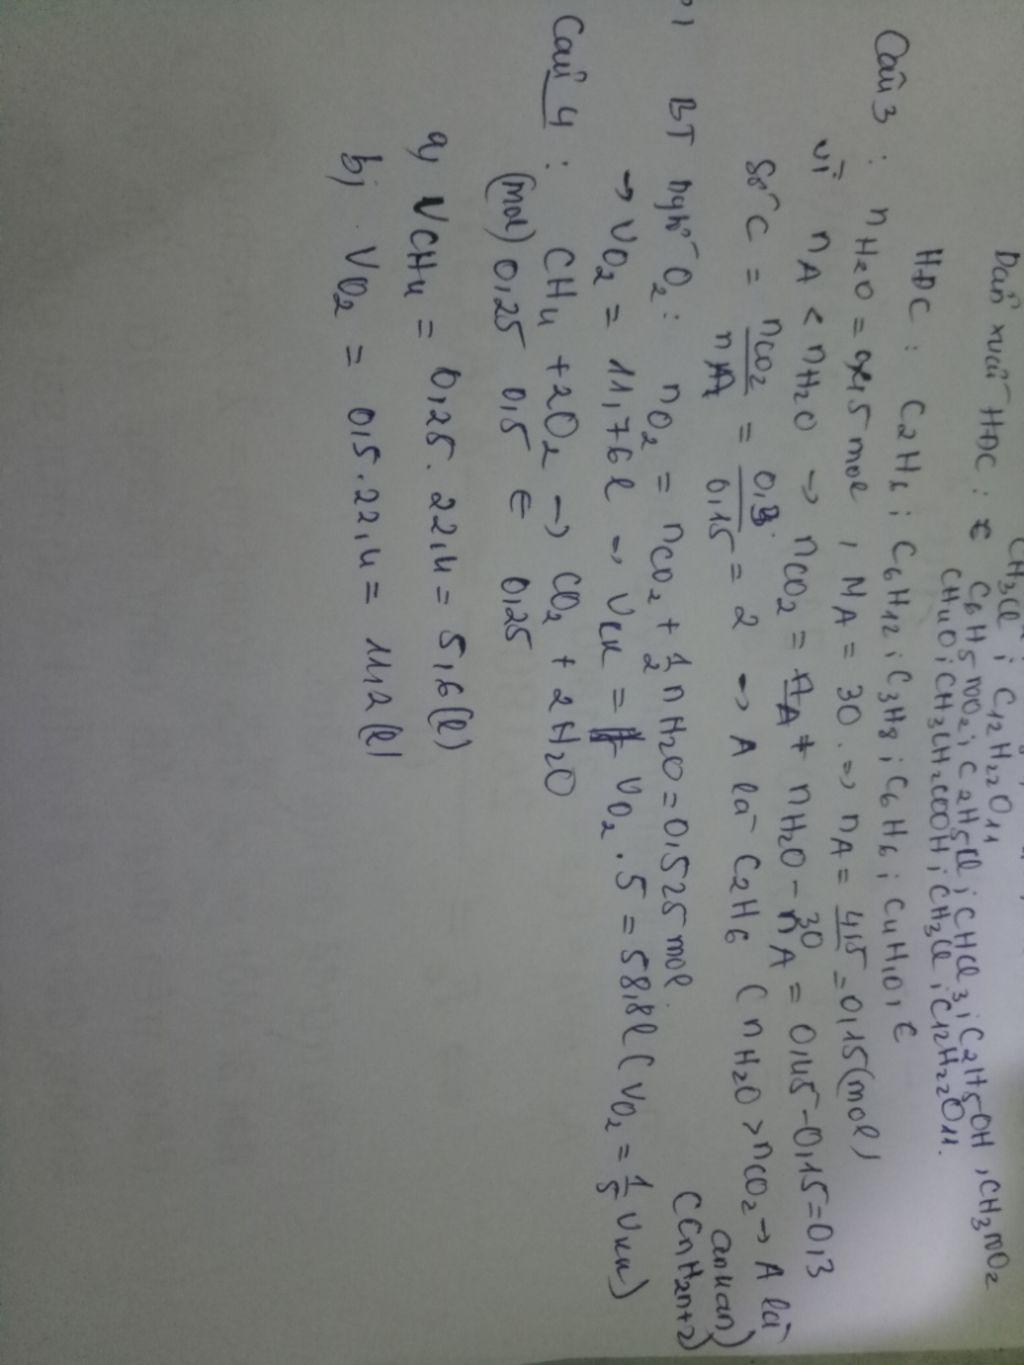 CH3Cl ; C12H22O11
Dẫn xuất HĐC : C6H5NO2 ; C2H5Cl ; CHCl3 ; C2H5OH , CH3NO2
CH4O ; CH3CH2COOH ; CH3Cl ; C12H22O11.
HĐC : C2H6 ; C6H12 ; C3H8 ; C6H6 ; C4H10 ;
Câu 3 : nH2O = 0,45 mol , MA = 30 . → nA = 4,5/30 = 0,15 (mol)
vì nA < nH2O → nCO2 = nH2O - nA = 0,45 - 0,15 = 0,3
Số C = nCO2/nA = 0,3/0,15 = 2 → A là C2H6 ( nH2O > nCO2 → A là ankan)
(CnH2n+2)
b) BT ngtố O2 : nO2 = nCO2 + 1/2 nH2O = 0,525 mol.
→ VO2 = 11,76 l → Vkk = VO2 . 5 = 58,8 l ( VO2 = 1/5 Vkk )
Câu 4 : CH4 + 2O2 → CO2 + 2H2O
(mol) 0,25 0,5 ← 0,25
a, VCH4 = 0,25 . 22,4 = 5,6 (l)
b, VO2 = 0,5 . 22,4 = 11,2 (l)